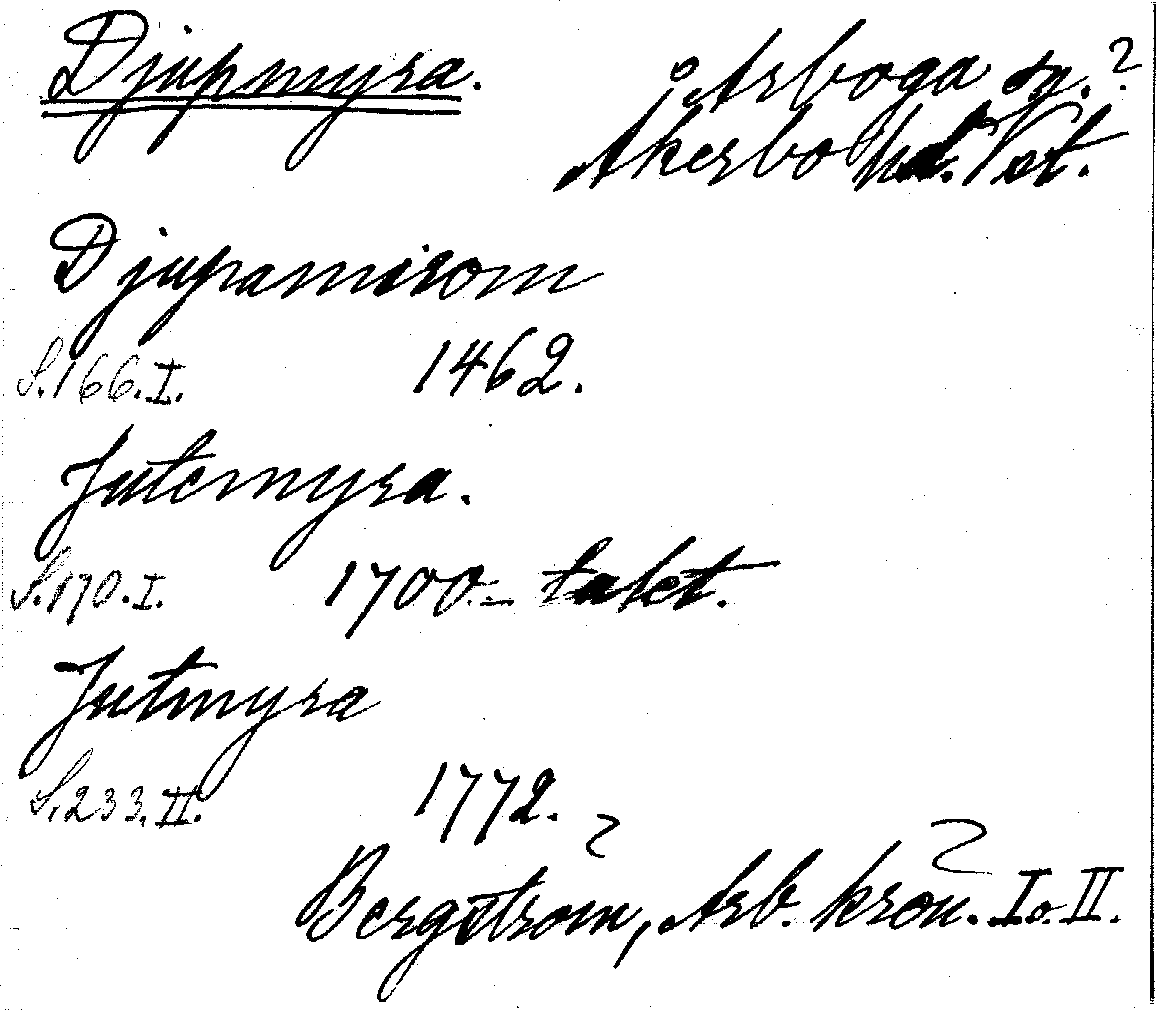 Djupmyra.
Arboga sn.?
Åkerbo hd. Vst.
Djupamirom
S.166.I. 1462.
Jutemyra.
S.170.I. 1700-talet.
Jutmyra
S.233.II. 1772.
Bergström, Arb. krön. I o. II.